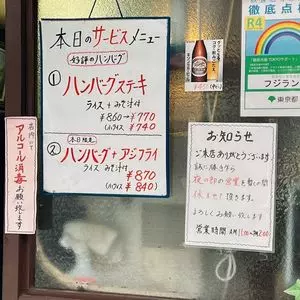 本日のサービスメニュー
好評のハンバーグ
① ハンバーグステーキ
ライス + みそ汁付
¥860→¥770
(小ライス ¥740)
本日限定
② ハンバーグ+アジフライ
ライス みそ汁付
¥870
(小ライス ¥840)
店内にて
アルコール消毒
お願い致します
徹底点検
R4
フジラン
東京都
お知らせ
ご来店ありがとうございます
誠に勝手ながら
夜の部の営業を暫くの間
休ませて頂きます。
よろしくお願い致します
営業時間 AM